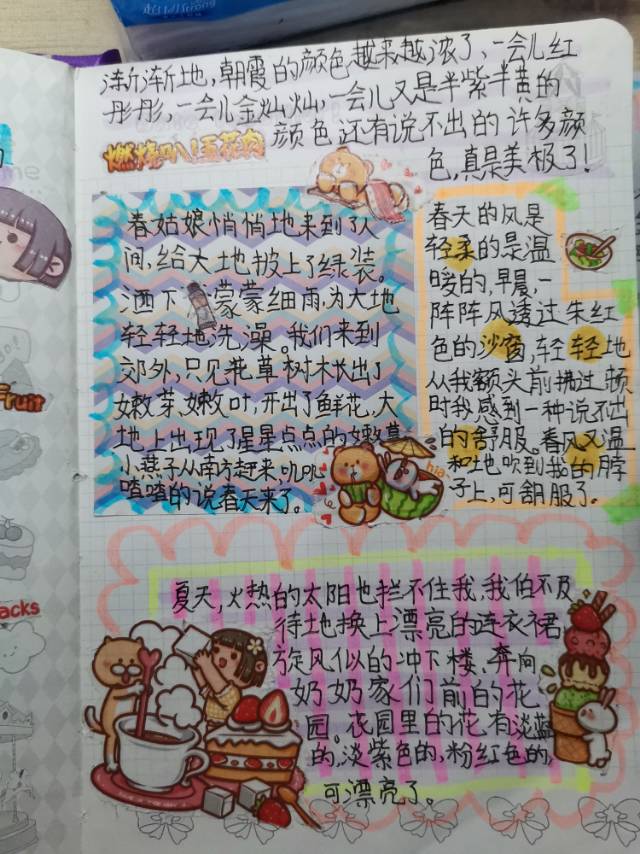 渐渐地,朝霞的颜色越来越浓了,一会儿红
彤彤,一会儿金灿灿,一会儿又是半紫半黄的
颜色还有说不出的许多颜
色,真是美极了!
燃烧趴!五花肉
春姑娘悄悄地来到了人
间,给大地披上了绿装。
洒下濛濛细雨,为大地
轻轻地洗澡。我们来到
郊外,只见花草树木长出了
嫩芽、嫩叶,开出了鲜花,大
地上出现了星星点点的嫩草
小燕子从南方赶来,叽叽
喳喳的说春天来了。
春天的风是
轻柔的是温
暖的,早晨,一
阵阵风透过朱红
色的沙窗,轻轻地
从我额头前拂过顿
时我感到一种说不出
的舒服。春风又温
和地吹到我的脖
子上,可舒服了。
hia
夏天,火热的太阳也拦不住我,我迫不及
待地换上漂亮的连衣裙
旋风似的冲下楼,奔向
奶奶家们前的花
园。花园里的花,有淡蓝
的,淡紫色的,粉红色的,
可漂亮了。
Fruit
acks